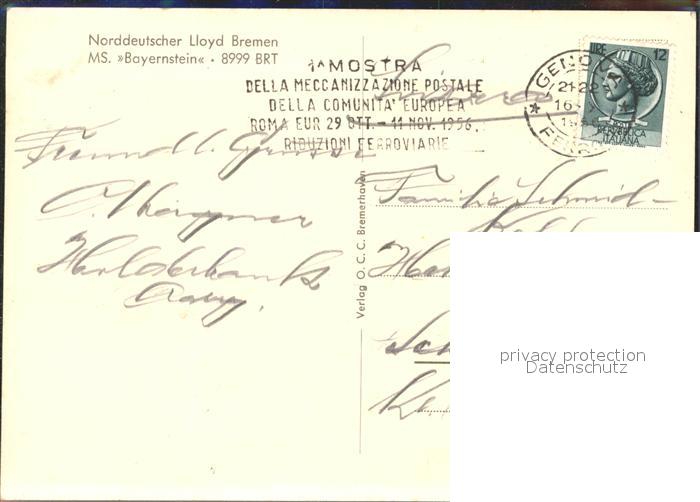 Norddeutscher Lloyd Bremen
MS. »Bayernstein« · 8999 BRT
1ª MOSTRA
DELLA MECCANIZZAZIONE POSTALE
DELLA COMUNITA' EUROPEA
ROMA EUR 29 OTT. - 11 NOV. 1956.
RIDUZIONI FERROVIARIE
GENOVA
21-22
16
FERR
LIRE 12
REPUBBLICA
ITALIANA
Freundl. Grüsse
Holderbank
Aarg.
Verlag O. C. C. Bremerhaven
Familie Schmid-
privacy protection
Datenschutz